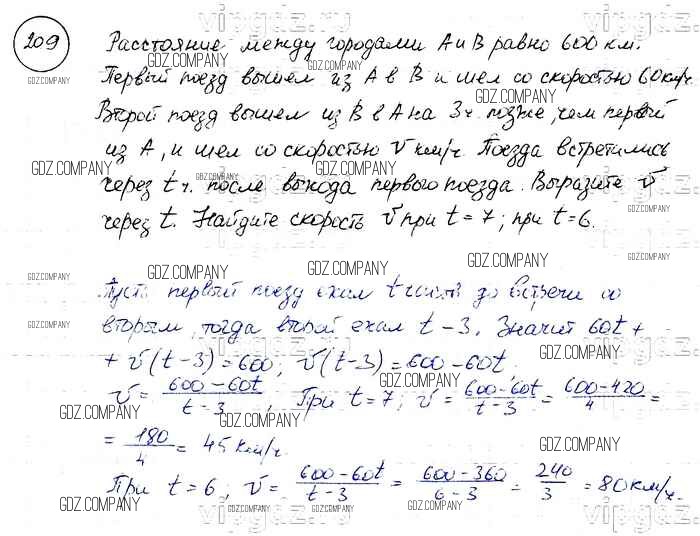 209
Расстояние между городами А и В равно 600 км.
Первый поезд вышел из А в В и шел со скоростью 60 км/ч.
Второй поезд вышел из В в А на 3 ч. позже, чем первый
из А, и шел со скоростью v км/ч. Поезда встретились
через t ч. после выхода первого поезда. Выразите v
через t. Найдите скорость v при t = 7; при t = 6.
Пусть первый поезд ехал t часов до встречи со
вторым, тогда второй ехал t - 3. Значит 60t +
+ v(t-3) = 600; v(t-3) = 600 - 60t,
v = (600-60t)/(t-3), При t = 7; v = (600-60t)/(t-3) = (600-420)/4 =
= 180/4 = 45 км/ч.
При t = 6; v = (600-60t)/(t-3) = (600-360)/(6-3) = 240/3 = 80 км/ч.
GDZ.COMPANY
vipgdz.ru